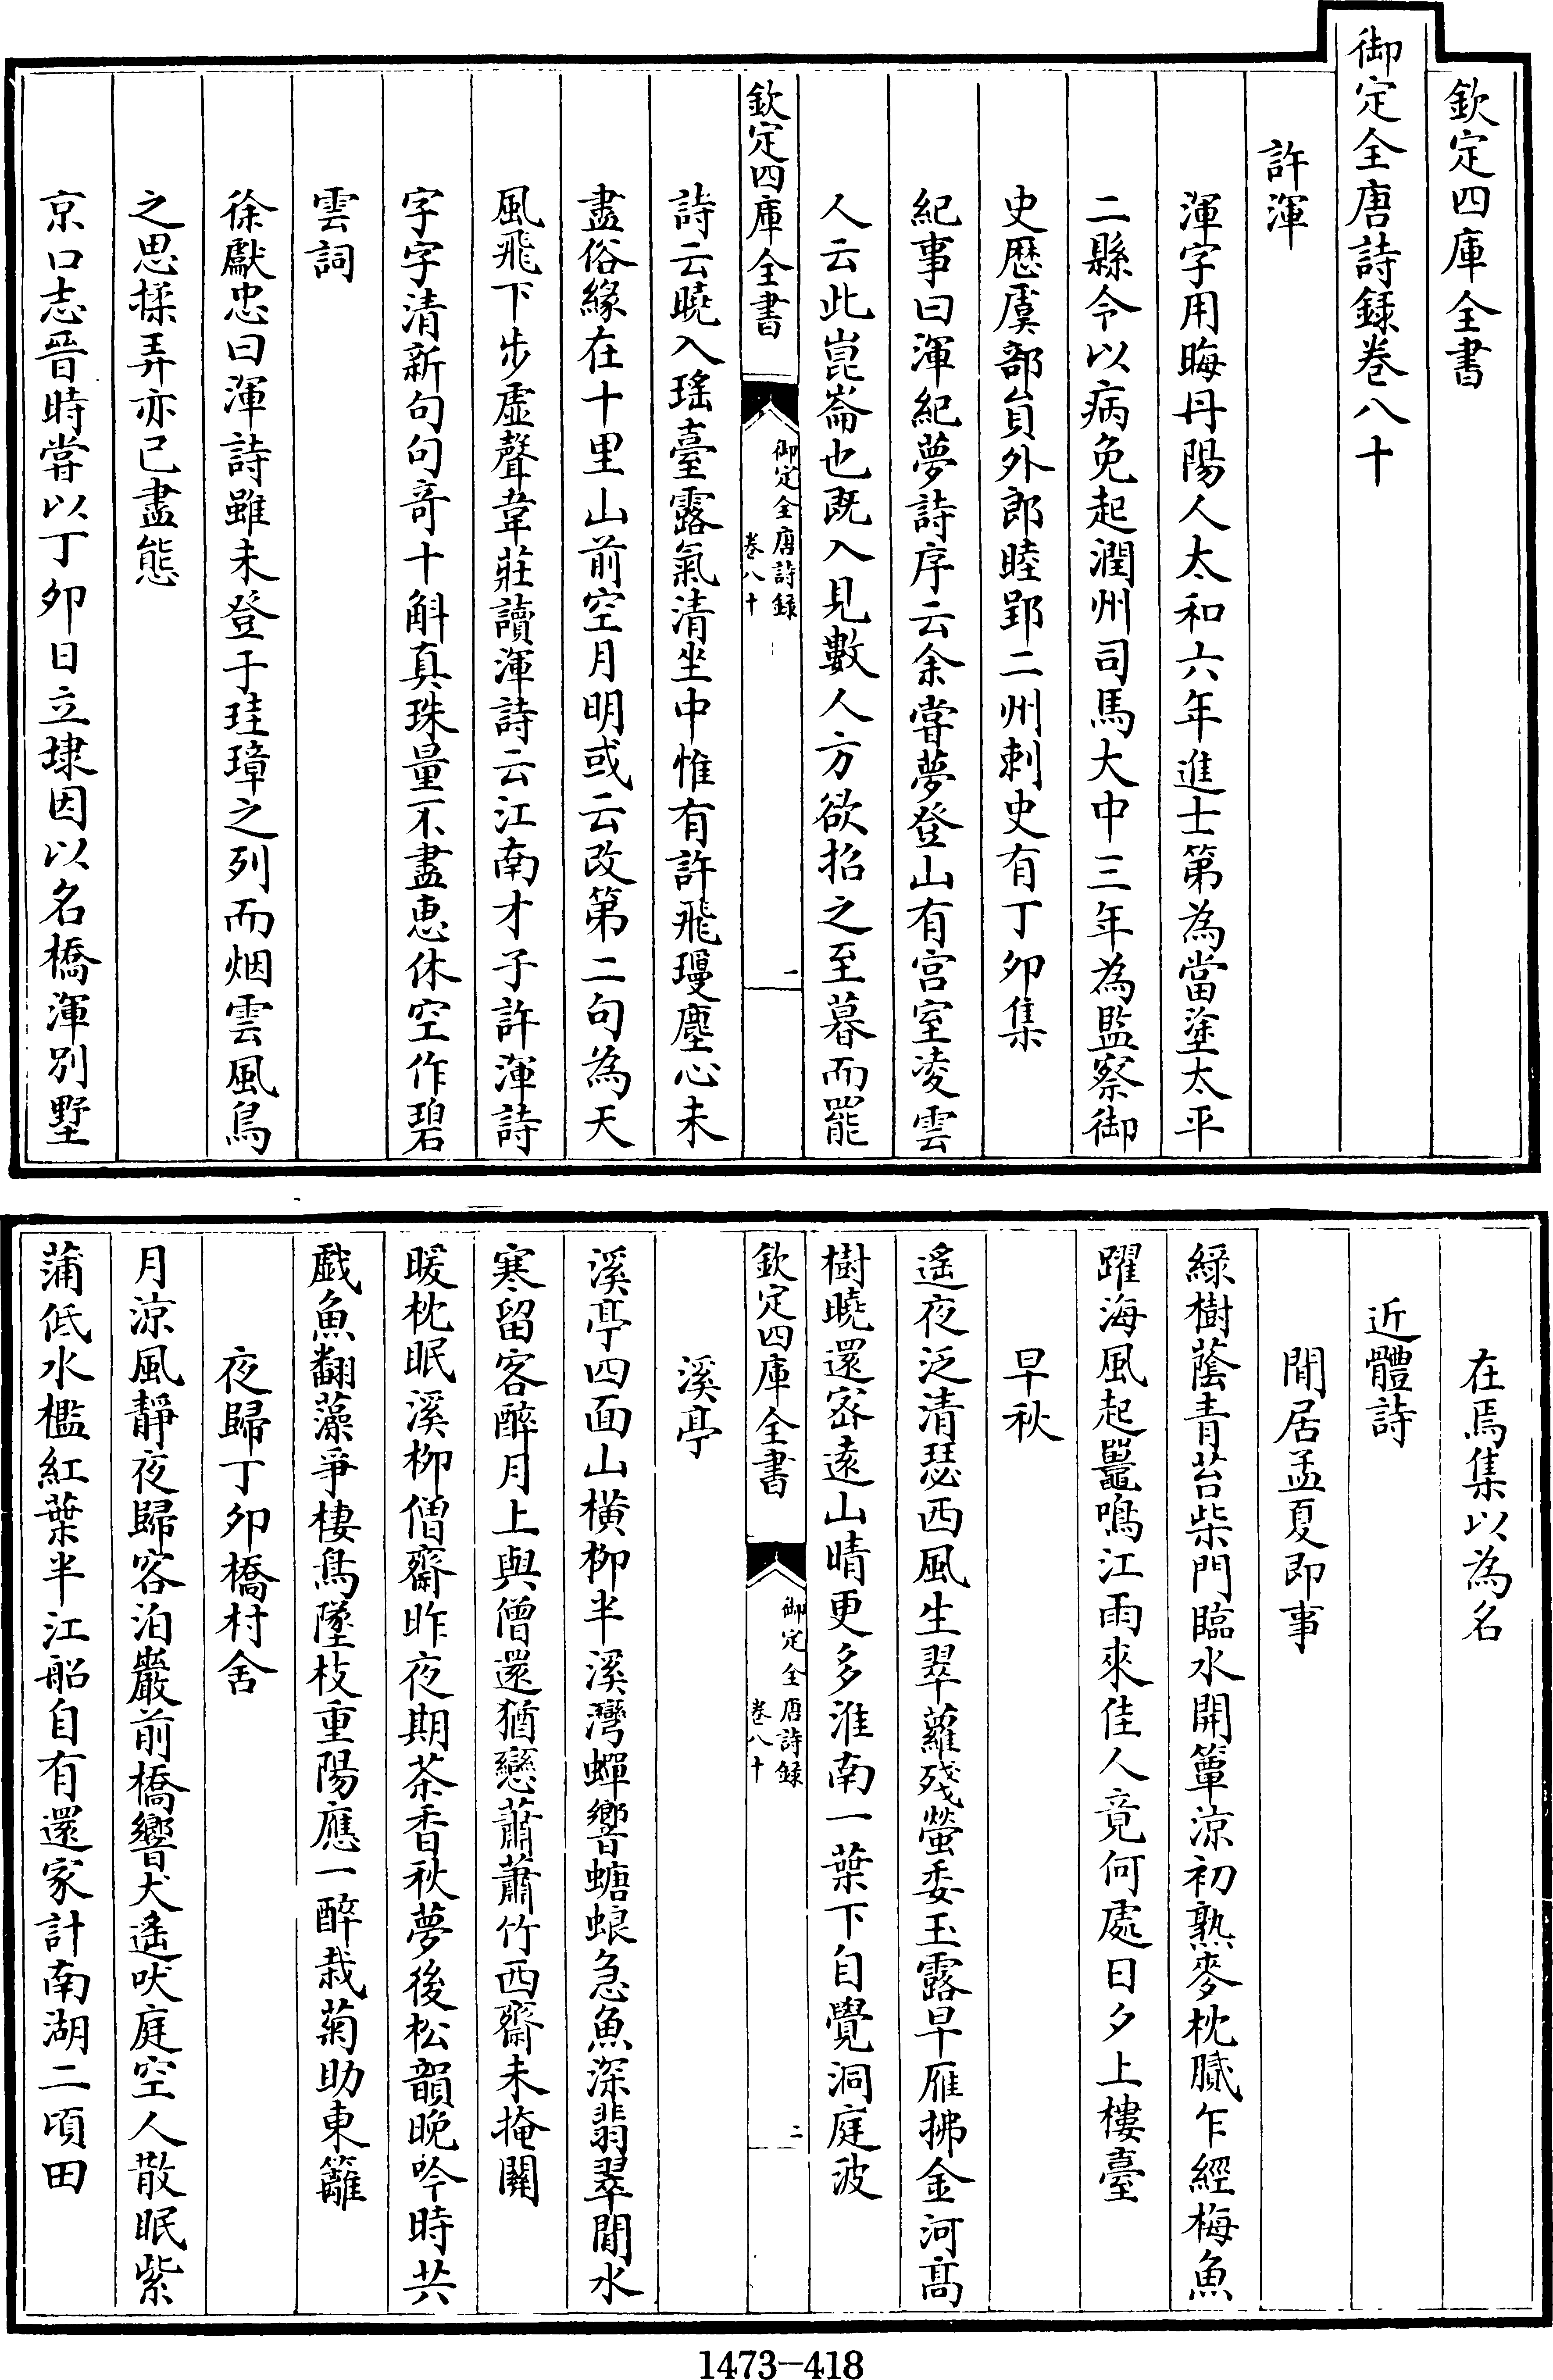 欽定四庫全書
御定全唐詩録巻八十
許渾
渾字用晦丹陽人太和六年進士第為當塗太平
二縣令以病免起潤州司馬大中三年為監察御
史歴虞部員外郎睦郢二州刺史有丁卯集
紀事曰渾紀夢詩序云余甞夢登山有宫室凌雲
人云此崑崙也既入見數人方欲招之至暮而罷
欽定四庫全書
御定全唐詩録
巻八十
一
詩云曉入瑤臺露氣清坐中惟有許飛瓊塵心未
盡俗緣在十里山前空月明或云改第二句為天
風飛下步虛聲韋莊讀渾詩云江南才子許渾詩
字字清新句句奇十斛真珠量不盡恵休空作碧
雲詞
徐獻忠曰渾詩雖未登于珪璋之列而烟雲風鳥
之思揉弄亦已盡態
京口志晉時甞以丁卯日立埭因以名橋渾別墅
在焉集以為名
近體詩
閒居孟夏即事
緑樹蔭青苔柴門臨水開簟涼初熟麥枕膩乍經梅魚
躍海風起鼉鳴江雨來佳人竟何處日夕上樓臺
早秋
遙夜泛清瑟西風生翠蘿殘螢委玉露早雁拂金河髙
樹曉還宻逺山晴更多淮南一葉下自覺洞庭波
欽定四庫全書
御定全唐詩録
巻八十
二
溪亭
溪亭四面山橫栁半溪灣蟬響螗蜋急魚深翡翠閒水
寒留客醉月上與僧還猶戀蕭蕭竹西齋未掩關
暖枕眠溪栁僧齋昨夜期茶香秋夢後松韻晚吟時共
戯魚翻藻爭棲鳥墜枝重陽應一醉栽菊助東籬
夜歸丁卯橋村舍
月涼風靜夜歸客泊巖前橋響犬遙吠庭空人散眠紫
蒲低水檻紅葉半江船自有還家計南湖二頃田
1473-418